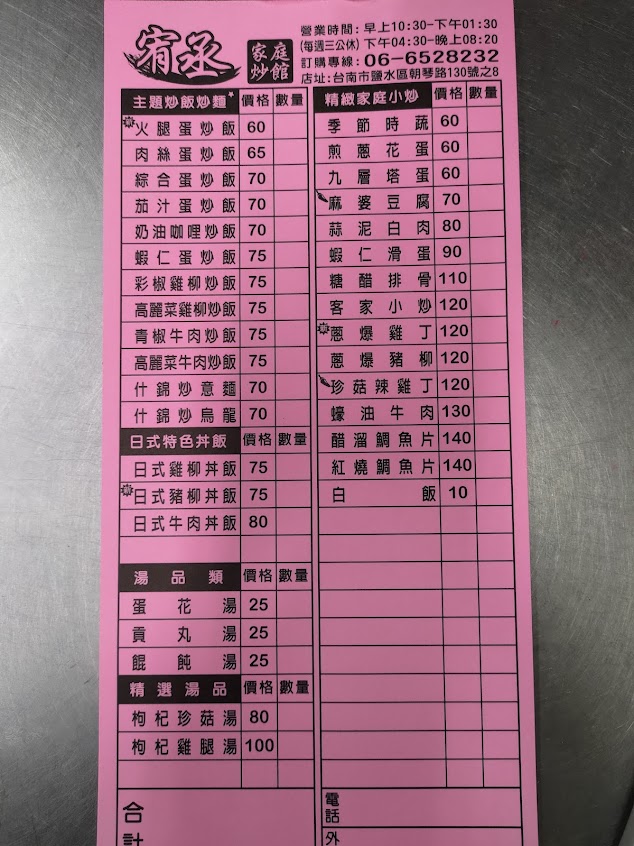 宥丞
家庭炒館
營業時間:早上10:30-下午01:30
(每週三公休) 下午04:30-晚上08:20
訂購專線:06-6528232
店址:台南市鹽水區朝琴路130號之8
主題炒飯炒麵* 價格 數量
火腿蛋炒飯 60
肉絲蛋炒飯 65
綜合蛋炒飯 70
茄汁蛋炒飯 70
奶油咖哩炒飯 70
蝦仁蛋炒飯 75
彩椒雞柳炒飯 75
高麗菜雞柳炒飯 75
青椒牛肉炒飯 75
高麗菜牛肉炒飯 75
什錦炒意麵 70
什錦炒烏龍 70
日式特色丼飯 價格 數量
日式雞柳丼飯 75
日式豬柳丼飯 75
日式牛肉丼飯 80
湯品類 價格 數量
蛋花湯 25
貢丸湯 25
餛飩湯 25
精選湯品 價格 數量
枸杞珍菇湯 80
枸杞雞腿湯 100
合計
精緻家庭小炒 價格 數量
季節時蔬 60
煎蔥花蛋 60
九層塔蛋 60
麻婆豆腐 70
蒜泥白肉 80
蝦仁滑蛋 90
糖醋排骨 110
客家小炒 120
蔥爆雞丁 120
蔥爆豬柳 120
珍菇辣雞丁 120
蠔油牛肉 130
醋溜鯛魚片 140
紅燒鯛魚片 140
白飯 10
電話
外